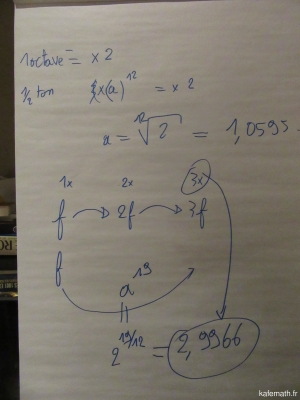 1 octave = x 2
1/2 ton f x (a)^12 = x 2
a = ¹²√2 = 1,0595.
1x 2x 3x
f → 2f → 3f
f
a^19
2^19/12 = 2,9966
kalemath.fr